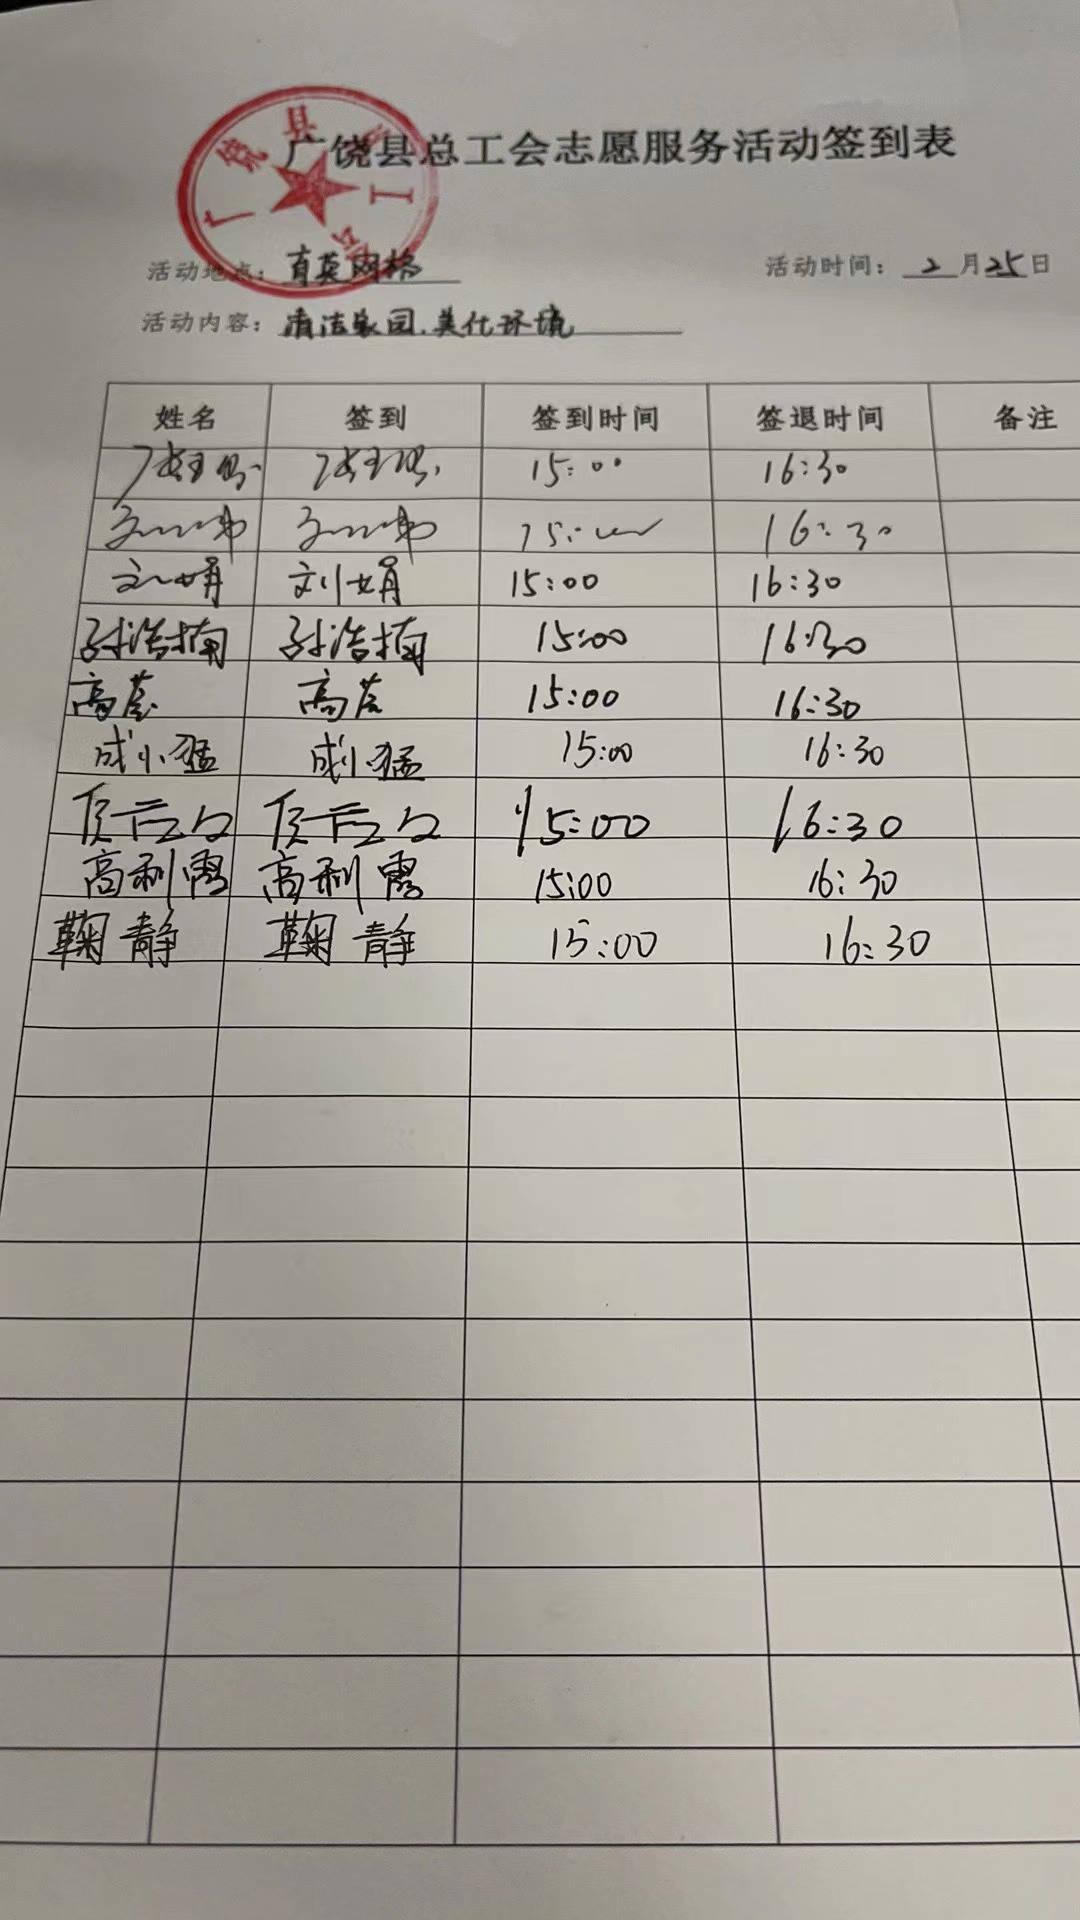 广饶县总工会志愿服务活动签到表
广饶县总工会
活动地点：育英网格 活动时间：2月25日
活动内容：清洁家园.美化环境
姓名 签到 签到时间 签退时间 备注
15:00 16:30
16:30
刘娟 刘娟 15:00 16:30
孙浩楠 孙浩楠 15:00 16:30
高蕊 高蕊 15:00 16:30
成小猛 成小猛 15:00 16:30
15:00 16:30
高利霞 高利霞 15:00 16:30
鞠静 鞠静 15:00 16:30